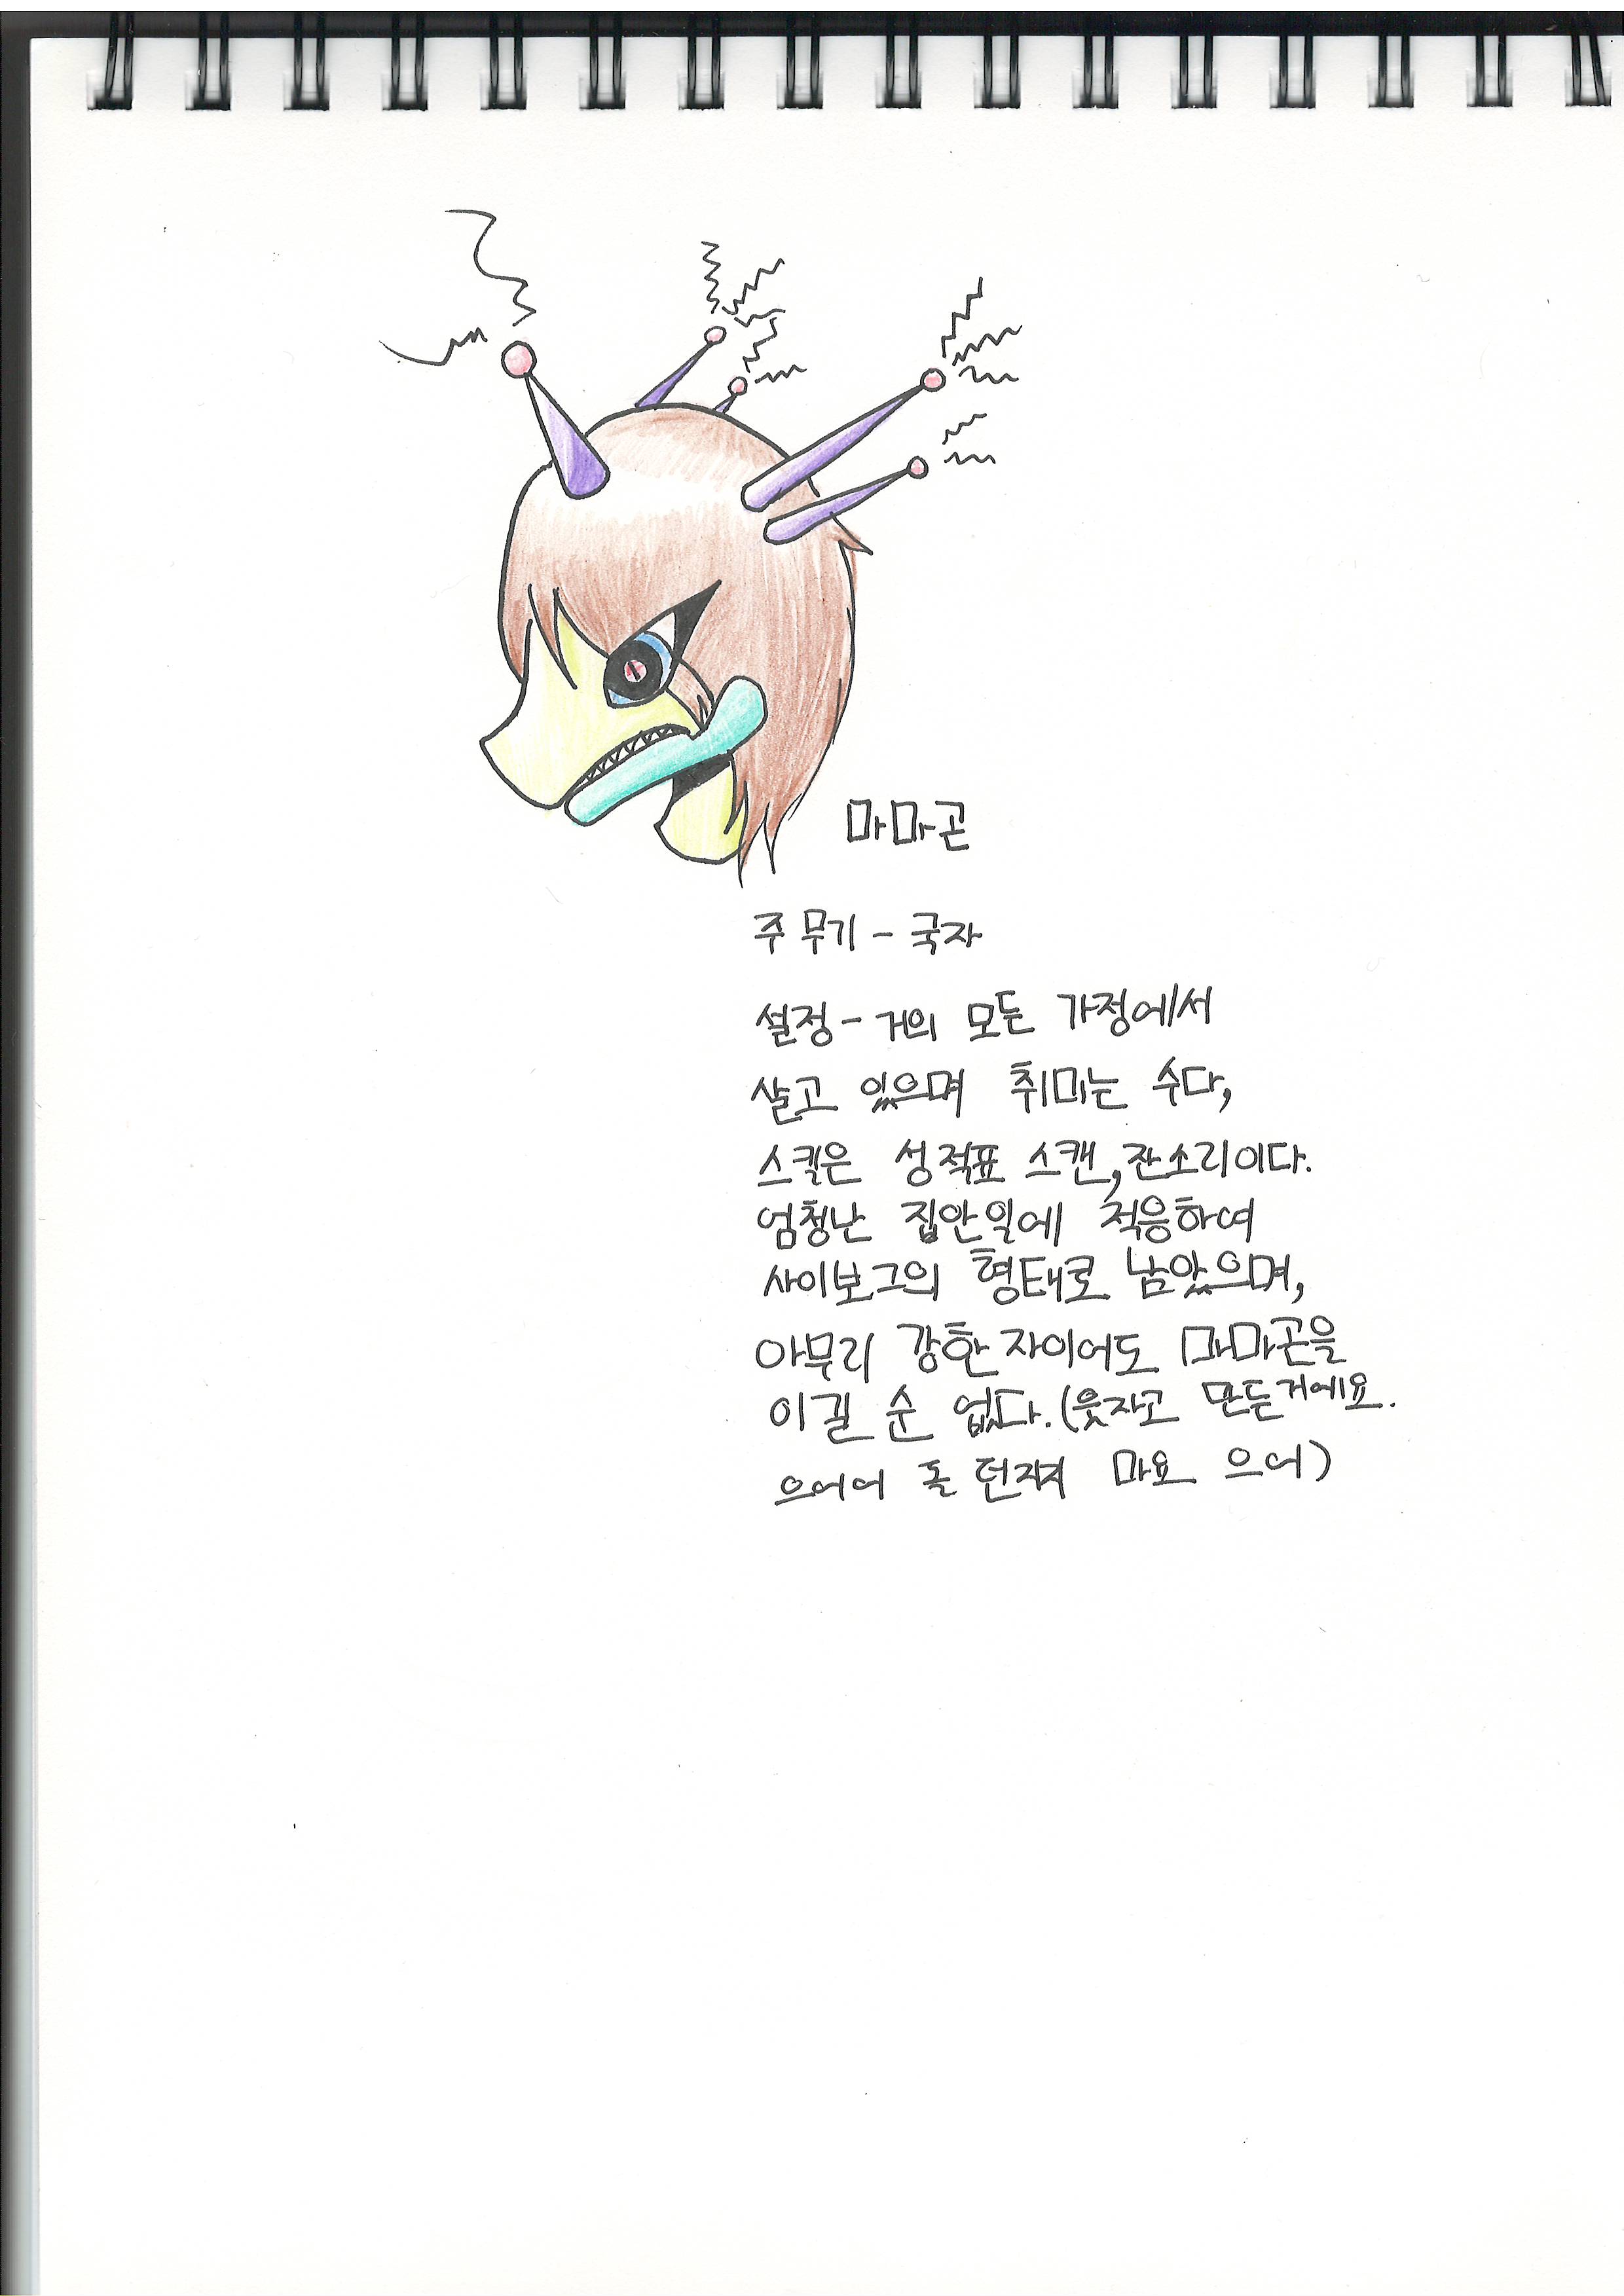 마마곤
주 무기 - 국자
설정 - 거의 모든 가정에서
살고 있으며 취미는 수다,
스킬은 성적표 스캔, 잔소리이다.
엄청난 집안일에 적응하여
사이보그의 형태로 남았으며,
아무리 강한 자이어도 마마곤을
이길 순 없다. (웃자고 만든거에요.
으어어 돌 던지지 마요 으어)